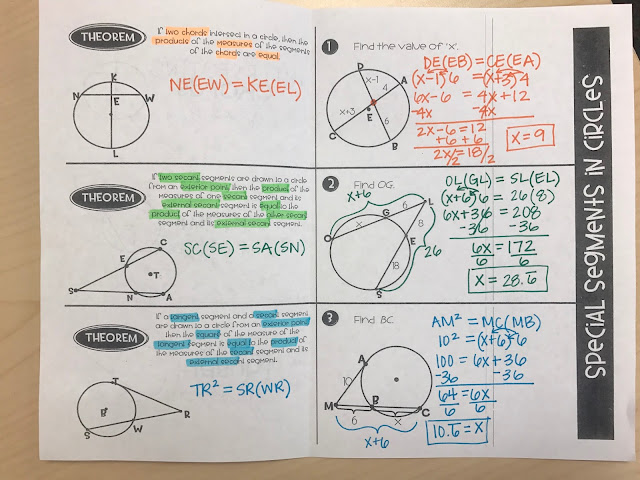 THEOREM
If two chords intersect in a circle, then the
products of the measures of the segments
of the chords are equal.
K
N
E
W
L
NE(EW) = KE(EL)
1
Find the value of 'x'.
D
x-1
A
4
x+3
E
6
C
B
DE(EB) = CE(EA)
(x-1)6 = (x+3)4
6x-6 = 4x+12
-4x -4x
2x-6=12
+6 +6
2x/2=18/2
x=9
THEOREM
If two secant segments are drawn to a circle
from an exterior point, then the product of the
measures of one secant segment and its
external secant segment is equal to the
product of the measures of the other secant
segment and its external secant segment.
C
E
T
S
N
A
SC(SE) = SA(SN)
2
Find OG.
x+6
6
L
G
x
8
O
E
26
18
S
OL(GL) = SL(EL)
(x+6)6 = 26(8)
6x+36 = 208
-36 -36
6x = 172
6 6
x = 28.6
THEOREM
If a tangent segment and a secant segment
are drawn to a circle from an exterior point,
then the square of the measure of the
tangent segment is equal to the product of
the measures of the secant segment and its
external secant segment.
T
B
R
S
W
TR² = SR(WR)
3
Find BC.
A
10
M
B
C
6
x
x+6
AM² = MC(MB)
10² = (x+6)6
100 = 6x+36
-36 -36
64 = 6x
6 6
10.6 = x
SPECIAL SEGMENTS IN CIRCLES